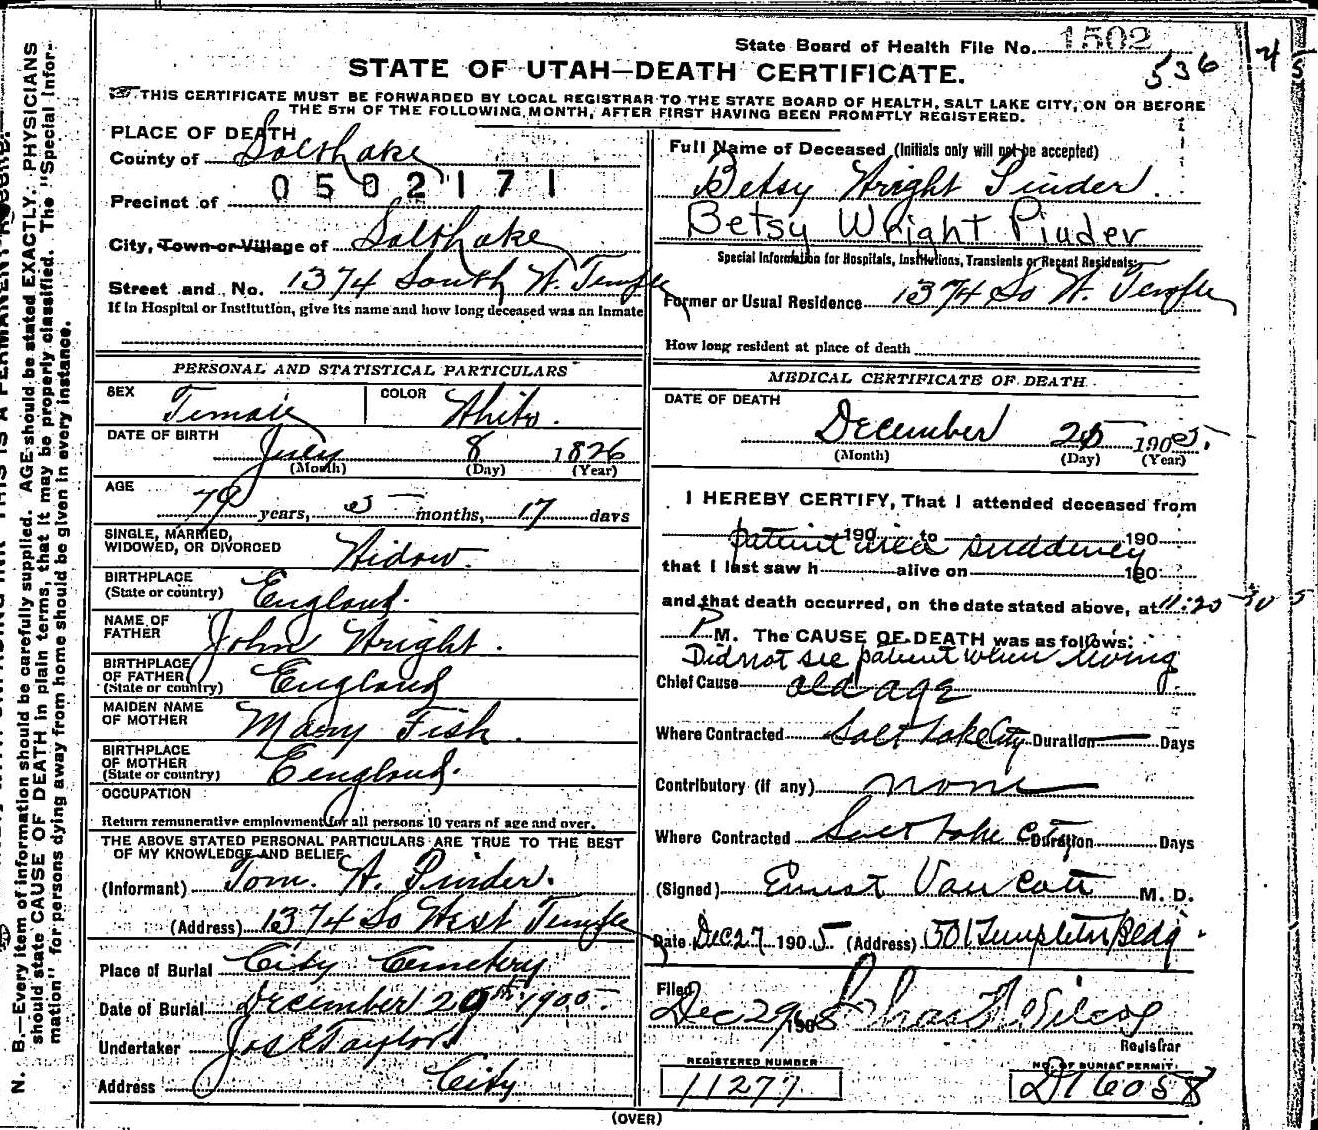 State Board of Health File No. 1502
536
45
STATE OF UTAH—DEATH CERTIFICATE.
THIS CERTIFICATE MUST BE FORWARDED BY LOCAL REGISTRAR TO THE STATE BOARD OF HEALTH, SALT LAKE CITY, ON OR BEFORE
THE 5TH OF THE FOLLOWING MONTH, AFTER FIRST HAVING BEEN PROMPTLY REGISTERED.
PLACE OF DEATH
County of Salt Lake
0502171
Precinct of
City, Town or Village of Salt Lake
Street and No. 1374 South W. Temple
If in Hospital or Institution, give its name and how long deceased was an Inmate
Full Name of Deceased (Initials only will not be accepted)
Betsy Wright Pinder.
Betsy Wright Pinder
Special Information for Hospitals, Institutions, Transients or Recent Residents:
Former or Usual Residence 1374 So W. Temple
How long resident at place of death
PERSONAL AND STATISTICAL PARTICULARS
SEX Female COLOR White.
DATE OF BIRTH July 8 1826
(Month) (Day) (Year)
AGE
79 years, 5 months, 17 days
SINGLE, MARRIED,
WIDOWED, OR DIVORCED Widow.
BIRTHPLACE
(State or country) England.
NAME OF
FATHER John Wright.
BIRTHPLACE
OF FATHER
(State or country) England
MAIDEN NAME
OF MOTHER Mary Fish.
BIRTHPLACE
OF MOTHER
(State or country) England.
OCCUPATION
Return remunerative employment for all persons 10 years of age and over.
THE ABOVE STATED PERSONAL PARTICULARS ARE TRUE TO THE BEST
OF MY KNOWLEDGE AND BELIEF
(Informant) Tom. W. Pinder.
(Address) 1374 So West Temple
Place of Burial City Cemetery
Date of Burial December 29th 1905.
Undertaker Jos E Taylor
Address City
MEDICAL CERTIFICATE OF DEATH
DATE OF DEATH
December 25 1905.
(Month) (Day) (Year)
I HEREBY CERTIFY, That I attended deceased from
patient died suddenly 190 to 190
that I last saw h alive on 190
and that death occurred, on the date stated above, at 11:20
P M. The CAUSE OF DEATH was as follows:
Did not see patient when living
Chief Cause old age
Where Contracted Salt Lake City Duration Days
Contributory (if any) none
Where Contracted Salt Lake City Duration Days
(Signed) Ernest Van Cott M. D.
Date Dec 27 1905 (Address) 501 Templeton Bldg.
Filed
Dec 29 1905
Registrar
REGISTERED NUMBER
11277
NO. OF BURIAL PERMIT:
D16058
(OVER)
N. B.—Every item of information should be carefully supplied. AGE should be stated EXACTLY. PHYSICIANS
should state CAUSE OF DEATH in plain terms, that it may be properly classified. The "Special Infor-
mation" for persons dying away from home should be given in every instance.